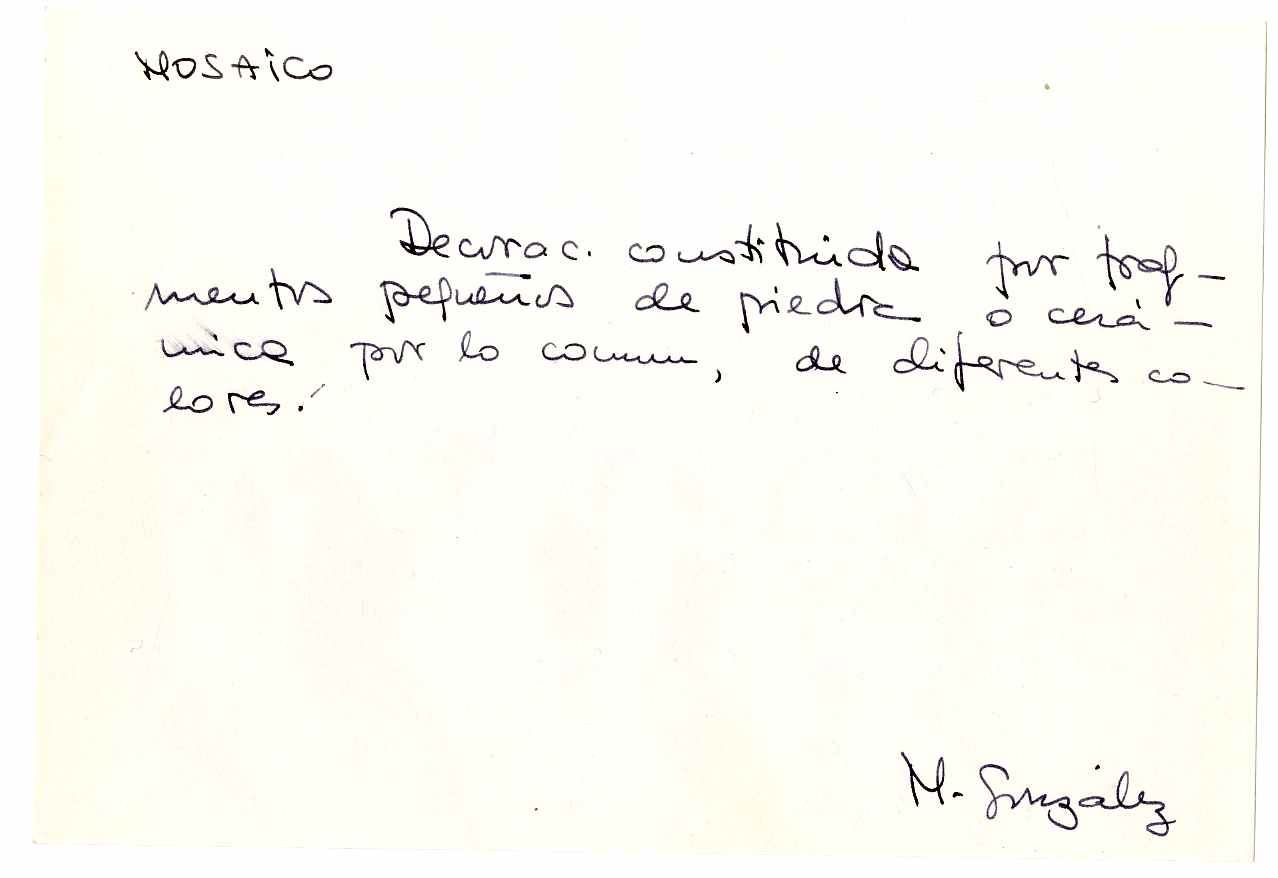 MOSAiCO
Decorac. constituida por frag-
mentos pequeños de piedra o cerá-
mica por lo comun, de diferentes co-
lores.
M. González